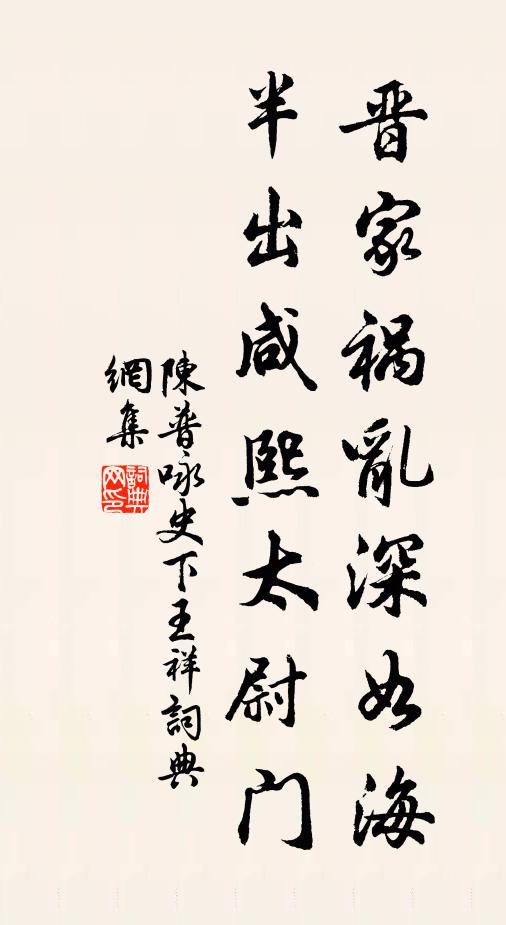 晋家祸亂深如海
半出咸熙太尉门
陳普咏史下王祥詞典
網集
詞典
网印